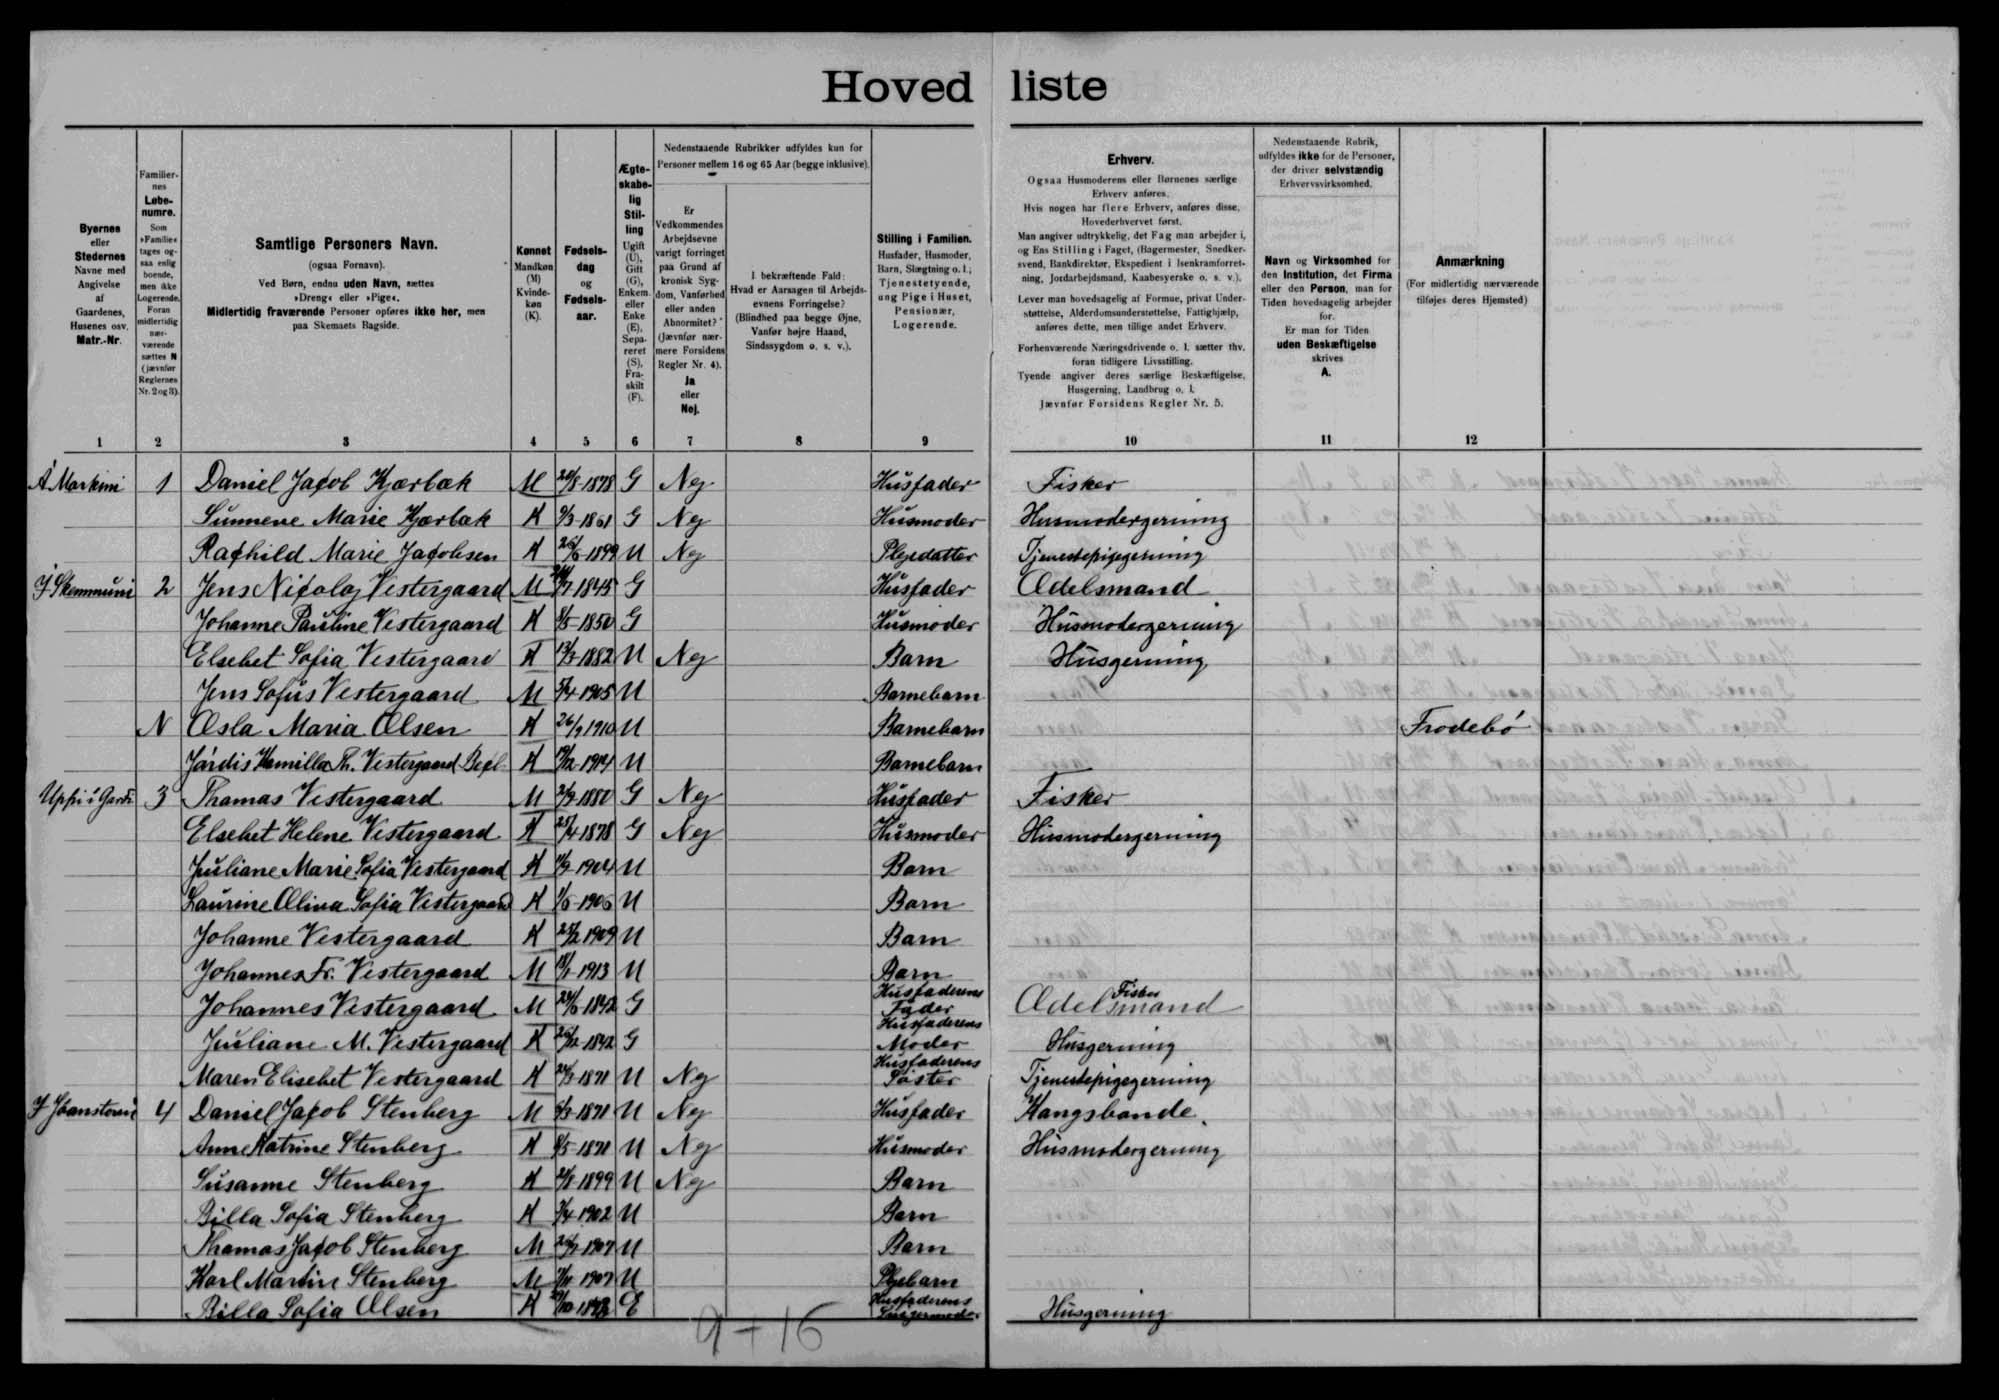 Hoved liste
Byernes eller Stedernes Navne med Angivelse af Gaardenes, Husenes osv. Matr.-Nr.
Familiernes Løbenumre. Som »Familie« tages ogsaa enlig boende, men ikke Logerende. Foran midlertidig nærværende sættes N (jævnfør Reglernes Nr. 2 og 3).
Samtlige Personers Navn. (ogsaa Fornavn). Ved Børn, endnu uden Navn, sættes »Dreng« eller »Pige«. Midlertidig fraværende Personer opføres ikke her, men paa Skemaets Bagside.
Kønnet Mandkøn (M) Kvindekøn (K).
Fødselsdag og Fødselsaar.
Ægteskabelig Stilling Ugift (U), Gift (G), Enkem. eller Enke (E), Separeret (S), Fraskilt (F).
Nedenstaaende Rubrikker udfyldes kun for Personer mellem 16 og 65 Aar (begge inklusive).
Er Vedkommendes Arbejdsevne varigt forringet paa Grund af kronisk Sygdom, Vanførhed eller anden Abnormitet? (Jævnfør nærmere Forsidens Regler Nr. 4). Ja eller Nej.
I bekræftende Fald: Hvad er Aarsagen til Arbejdsevnens Forringelse? (Blindhed paa begge Øjne, Vanfør højre Haand, Sindssygdom o. s. v.).
Stilling i Familien. Husfader, Husmoder, Barn, Slægtning o. l.; Tjenestetyende, ung Pige i Huset, Pensionær, Logerende.
Erhverv.
Ogsaa Husmoderens eller Børnenes særlige Erhverv anføres.
Hvis nogen har flere Erhverv, anføres disse, Hovederhvervet først.
Man angiver udtrykkelig, det Fag man arbejder i, og Ens Stilling i Faget, (Bagermester, Snedkersvend, Bankdirektør, Ekspedient i Isenkramforretning, Jordarbejdsmand, Kaabesyerske o. s. v.).
Lever man hovedsagelig af Formue, privat Understøttelse, Alderdomsunderstøttelse, Fattighjælp, anføres dette, men tillige andet Erhverv.
Forhenværende Næringsdrivende o. l. sætter thv. foran tidligere Livsstilling.
Tyende angiver deres særlige Beskæftigelse, Husgerning, Landbrug o. l.
Jævnfør Forsidens Regler Nr. 5.
Nedenstaaende Rubrik, udfyldes ikke for de Personer, der driver selvstændig Erhvervsvirksomhed.
Navn og Virksomhed for den Institution, det Firma eller den Person, man for Tiden hovedsagelig arbejder for.
Er man for Tiden uden Beskæftigelse skrives A.
Anmærkning (For midlertidig nærværende tilføjes deres Hjemsted)
1 2 3 4 5 6 7 8 9 10 11 12
Á Markini 1 Daniel Jacob Kjærbæk M 1878 G Nej Husfader Fisker
Sunneve Marie Kjærbæk K 9/3-1861 G Nej Husmoder Husmodergerning
Raghild Marie Jacobsen K 1899 U Nej Plejedatter Tjenestepigegerning
Í Skemmuni 2 Jens Nicolaj Vestergaard M 1845 G Husfader Odelsmand
Johanne Pauline Vestergaard K 8/5-1850 G Husmoder Husmodergerning
Elsebet Sofia Vestergaard K 13/3-1882 U Nej Barn Husgerning
Jens Sofus Vestergaard M 5/4-1905 U Barnebarn
N Osla Maria Olsen K 1910 U Barnebarn Frodebø
Jórdis Kamilla Th. Vestergaard K 19/12-1914 U Barnebarn
Uppi í Garði 3 Thomas Vestergaard M 2/9-1880 G Nej Husfader Fisker
Elsebet Helene Vestergaard K 25/4-1878 G Nej Husmoder Husmodergerning
Juliane Marie Sofia Vestergaard K 11/9-1904 U Barn
Laurine Oliva Sofia Vestergaard K 1/6-1906 U Barn
Johanne Vestergaard K 1909 U Barn
Johannes Fr. Vestergaard M 1913 U Barn
Johannes Vestergaard M 24/6-1842 G Husfaderens Fader Odelsmand Fisker
Juliane M. Vestergaard K 26/12-1842 G Husfaderens Moder Husgerning
Maren Elisebet Vestergaard K 1871 U Nej Husfaderens Søster Tjenestepigegerning
4 Daniel Jacob Stenberg M 1871 U Nej Husfader Kongsbonde
Anne Katrine Stenberg K 8/5-1871 U Nej Husmoder Husmodergerning
Susanne Stenberg K 1899 U Nej Barn
Billa Sofia Stenberg K 1902 U Barn
Thomas Jacob Stenberg M 1907 U Barn
Karl Martin Stenberg M 1907 U Plejebarn
Billa Sofia Olsen K E Husfaderens Svigermoder Husgerning
9 + 16